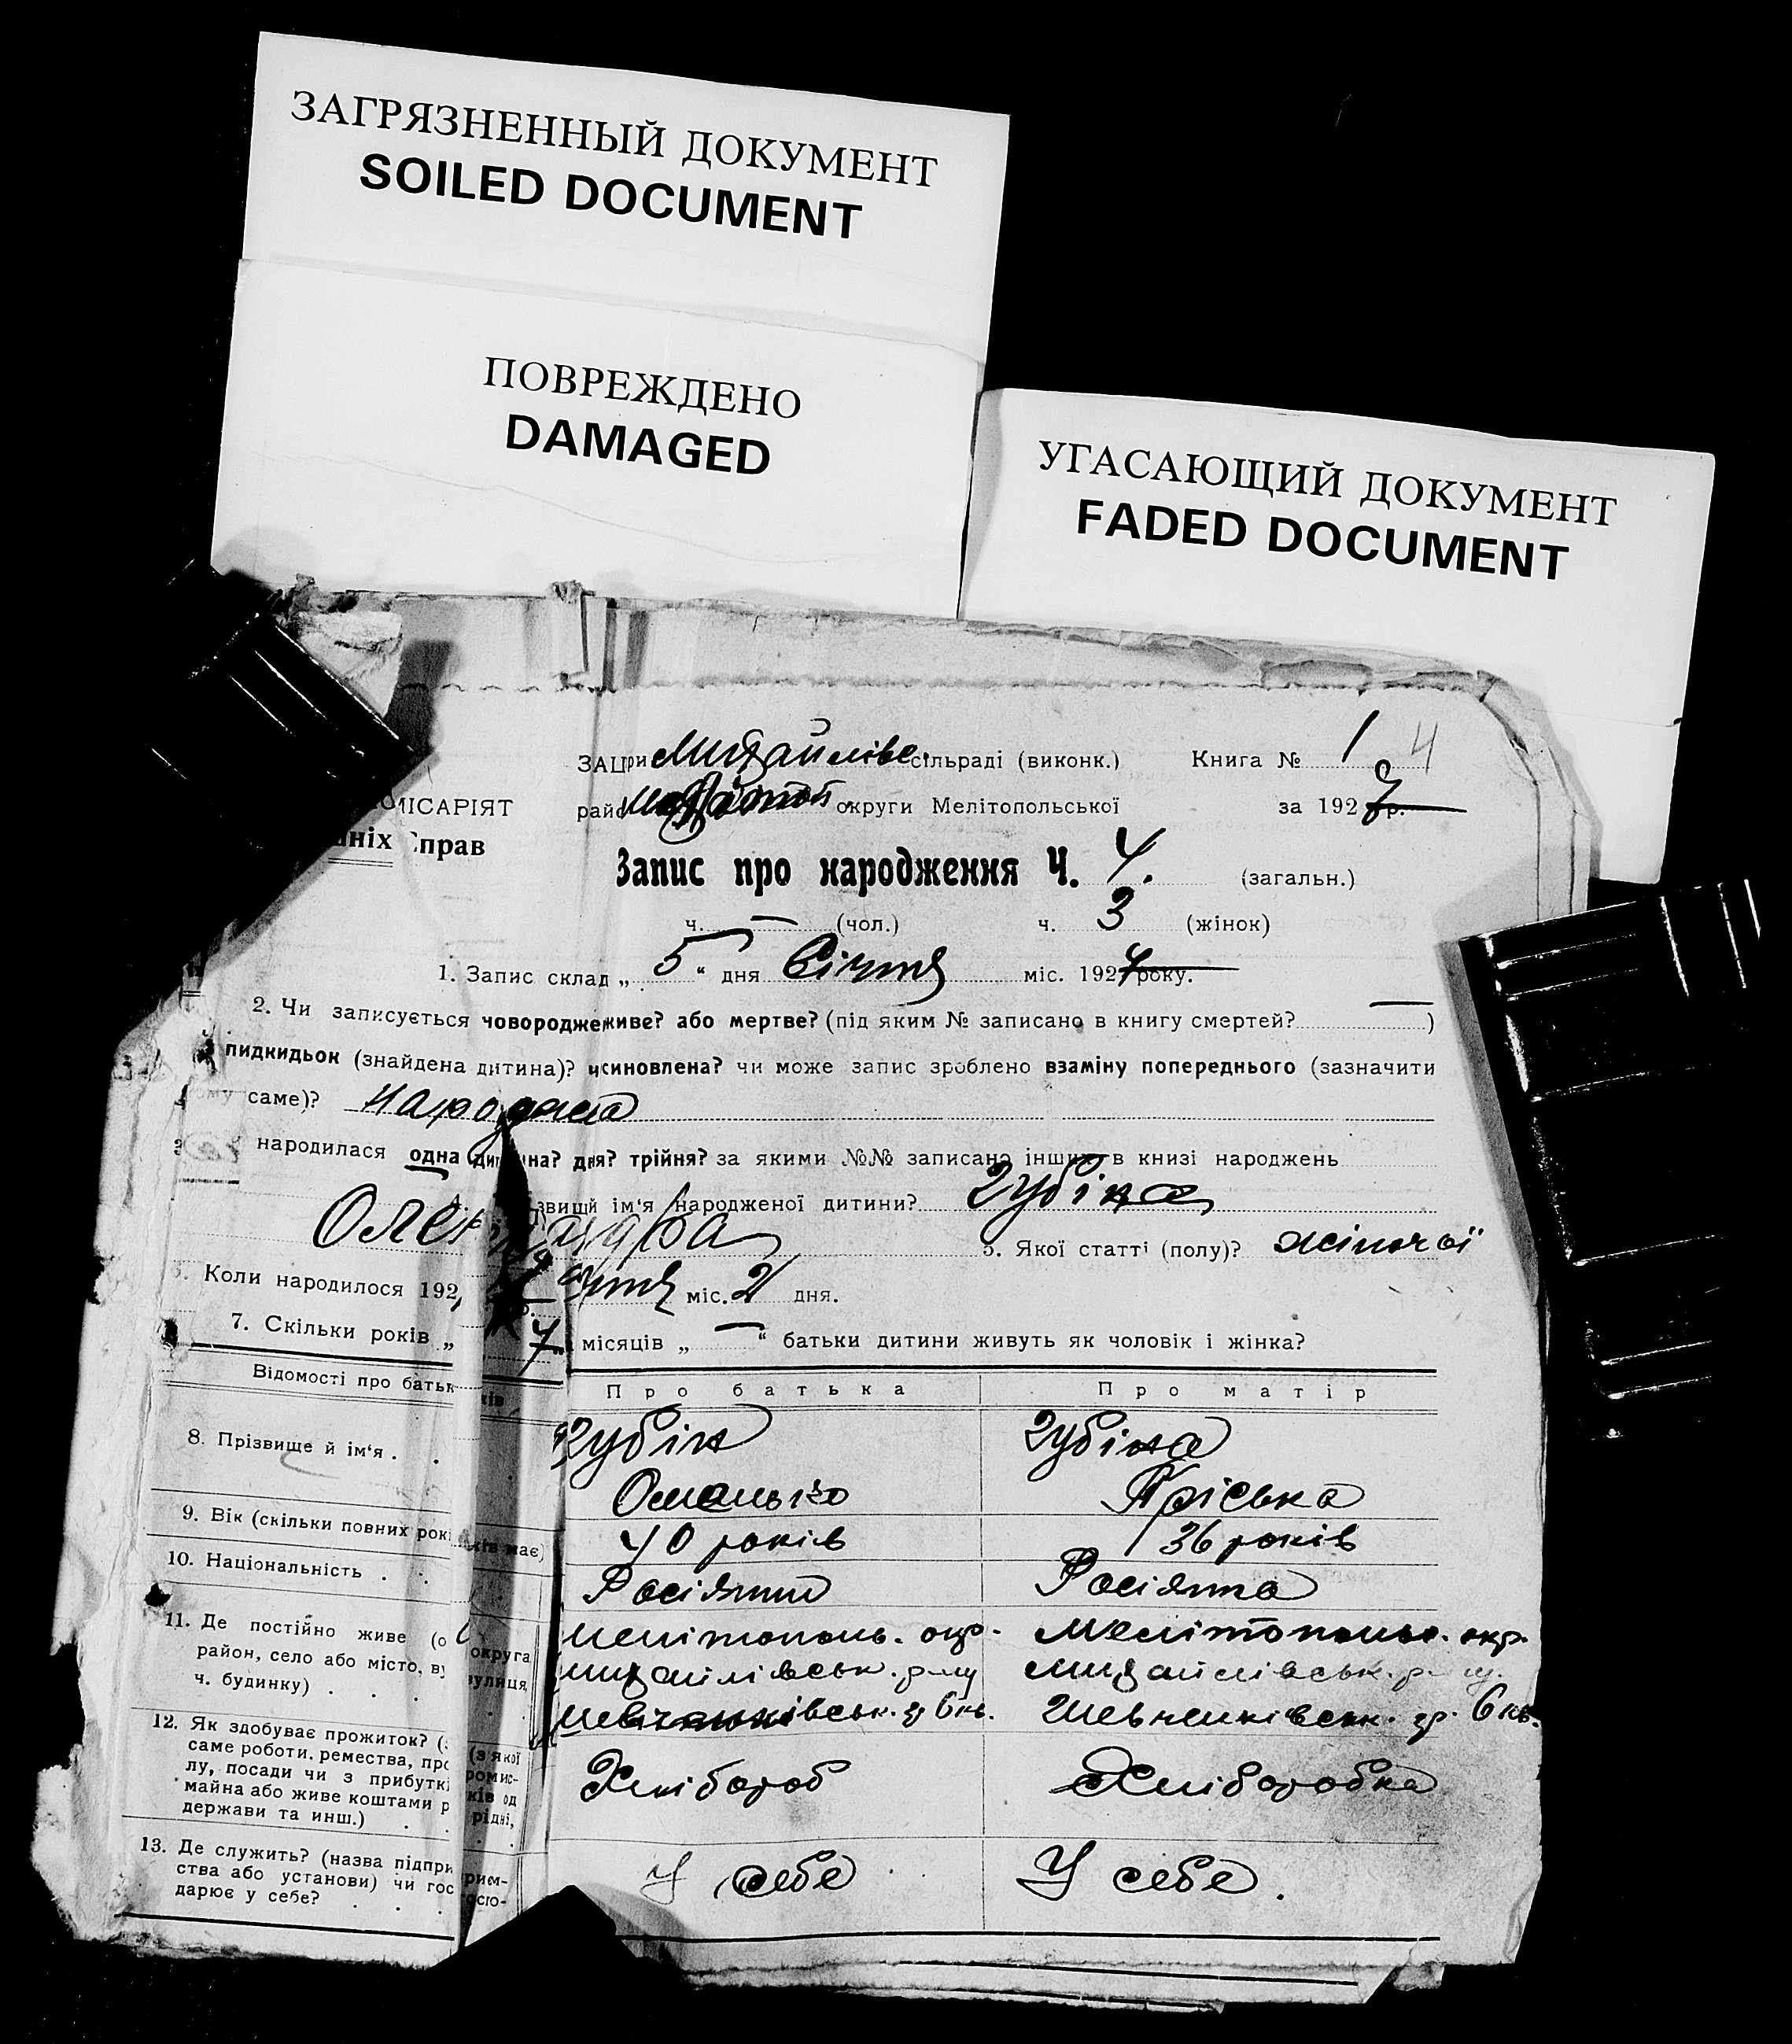 ЗАГРЯЗНЕННЫЙ ДОКУМЕНТ
SOILED DOCUMENT
ПОВРЕЖДЕНО
DAMAGED
УГАСАЮЩИЙ ДОКУМЕНТ
FADED DOCUMENT
ЗАЦ при Михайлівс. сільраді (виконк.) Книга № 1 4
МІСАРІЯТ
округи Мелітопольської за 1927 р.
ніх Справ
Запис про народження Ч. 4. (загальн.)
ч. — (чол.) ч. 3 (жінок)
1. Запис склад „ 5 “ дня Січня міс. 1927 року.
2. Чи записується живе? або мертве? (під яким № записано в книгу смертей? — )
пидкидьок (знайдена дитина)? чи може запис зроблено взаміну попереднього (зазначити
саме)? народжена
народилася одна трійня? за якими №№ записано інших в книзі народжень
ім'я народженої дитини? Зубіна
Олександра 5. Якої статті (полу)? жіночої
Коли народилося 192 міс. 2 дня.
7. Скільки років „ місяців „ — “ батьки дитини живуть як чоловік і жінка?
Відомості про батьків Про батька Про матір
8. Прізвище й ім'я . . Зубін Зубіна
Омелько Пріська
9. Вік (скільки повних рокі ків має) 40 років 36 років
10. Національність . . Росіянин Росіянка
11. Де постійно живе (о округа Мелітополь. окр. Мелітополь. окр.
район, село або місто, ву вулиця Михайлівськ. р-ну Михайлівськ. р-ну.
ч. будинку) . . . Шевченківськ. гр 6 кв. Шевченківськ. гр. 6 кв.
12. Як здобуває прожиток? (з якої
саме роботи, ремества, промис-
лу, посади чи з прибутків од
майна або живе коштами рідні,
держави та инш.) . . Хлібороб Хліборобка
13. Де служить? (назва підприєм-
ства або установи) чи госпо-
дарює у себе? . . . У себе У себе.